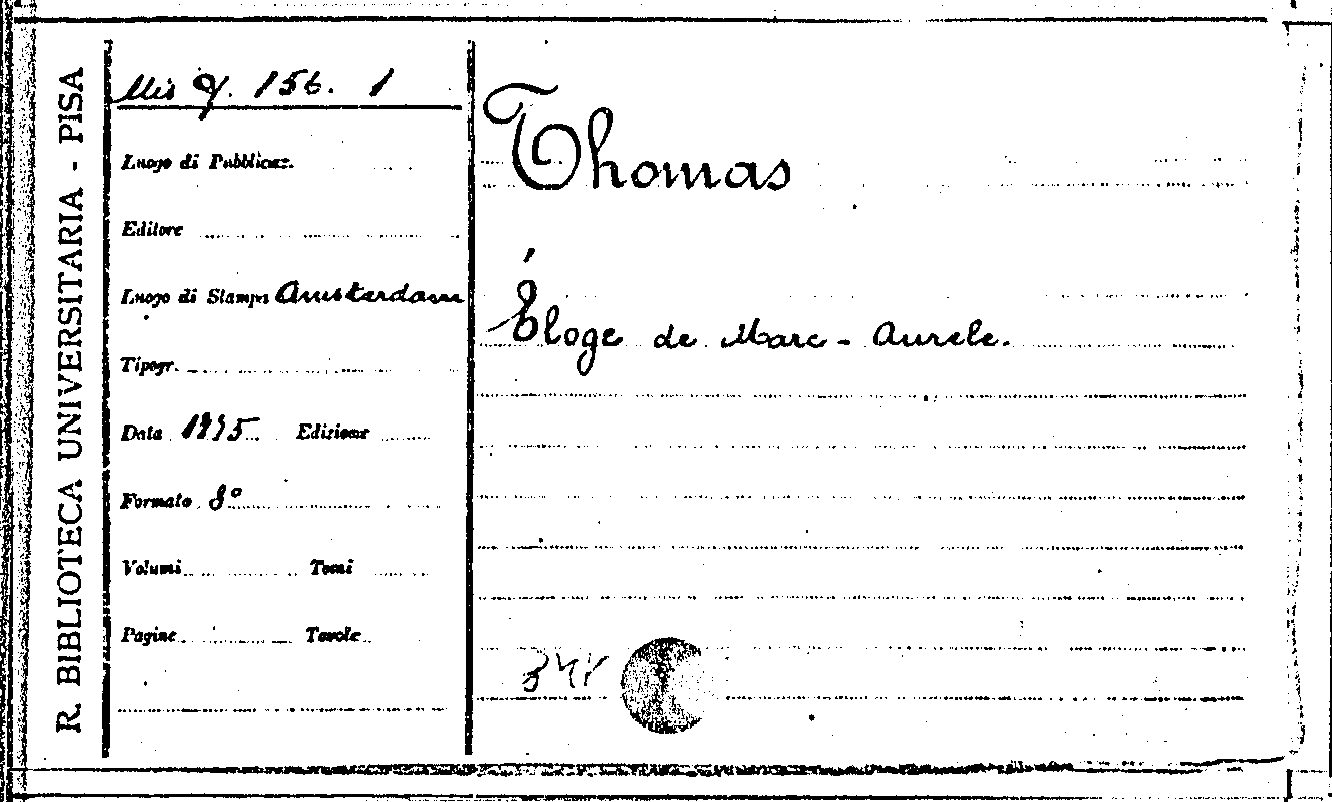 R. BIBLIOTECA UNIVERSITARIA - PISA
Mis q. 156. 1
Luogo di Pubblicaz.
Editore
Luogo di Stampa Amsterdam
Tipogr.
Data 1775 Edizione
Formato 8°
Volumi Tomi
Pagine Tavole
Thomas
Éloge de Marc-Aurele.